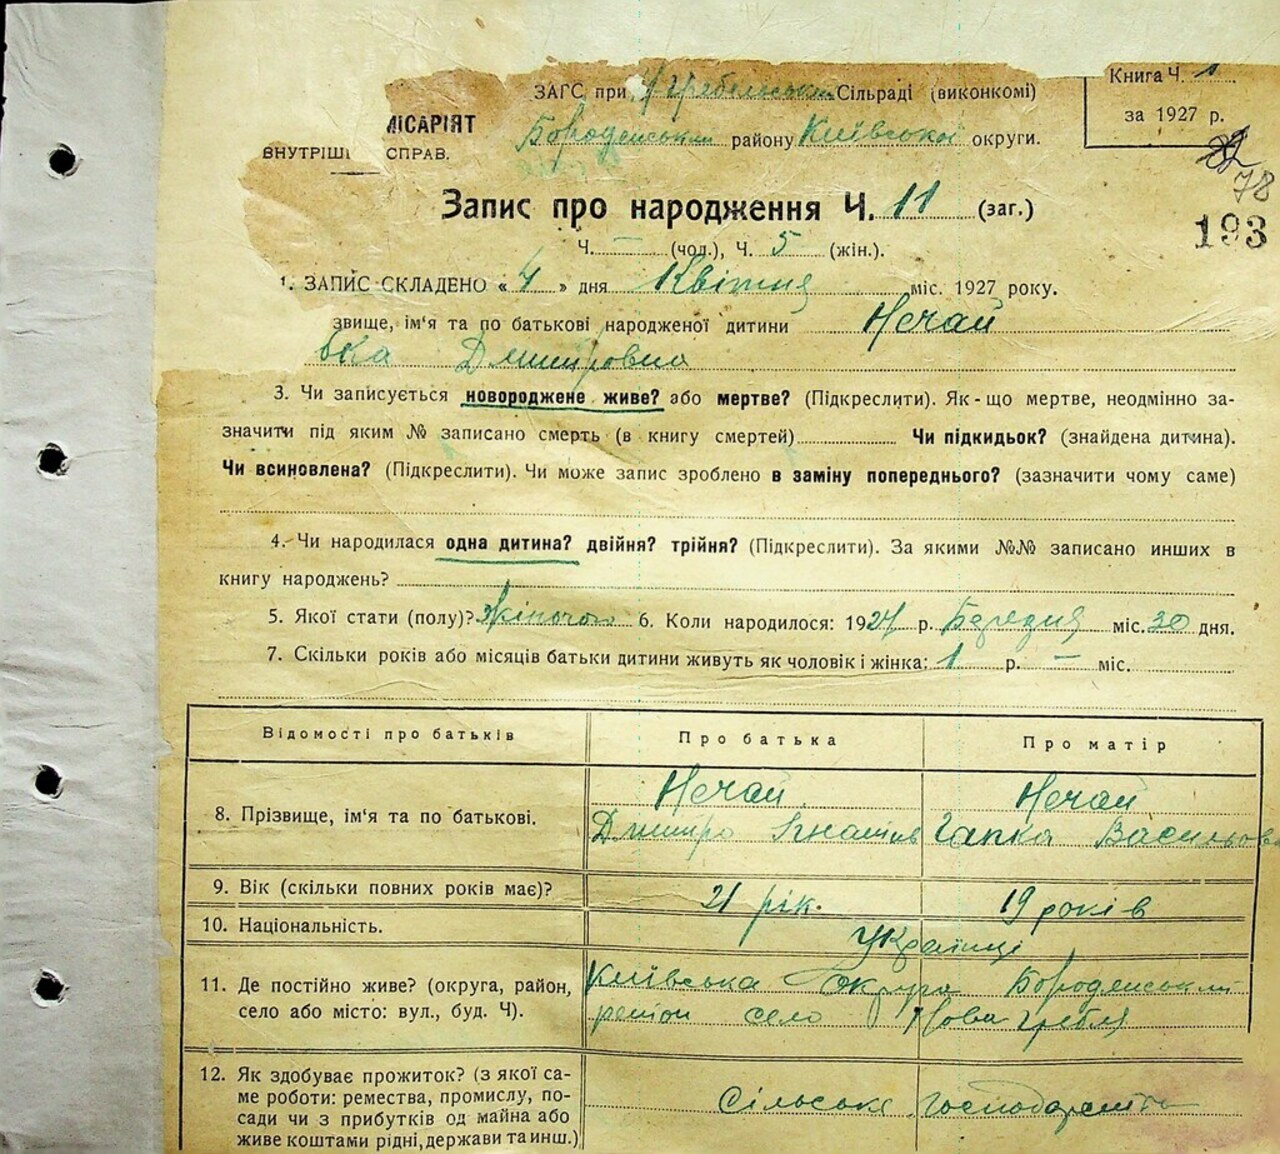 Книга Ч. 1
ЗАГС при Н/гребельськім Сільраді (виконкомі)
за 1927 р.
МІСАРІЯТ
ВНУТРІШ СПРАВ.
Бороденський району Київської округи.
78
193
Запис про народження Ч. 11 (заг.)
Ч. — (чол.), Ч. 5 (жін.).
1. ЗАПИС СКЛАДЕНО « 4 » дня Квітня міс. 1927 року.
звище, ім'я та по батькові народженої дитини Нечай
вка Дмитровна
3. Чи записується новороджене живе? або мертве? (Підкреслити). Як-що мертве, неодмінно за-
значити під яким № записано смерть (в книгу смертей) Чи підкидьок? (знайдена дитина).
Чи всиновлена? (Підкреслити). Чи може запис зроблено в заміну попереднього? (зазначити чому саме)
4. Чи народилася одна дитина? двійня? трійня? (Підкреслити). За якими №№ записано инших в
книгу народжень?
5. Якої стати (полу)? Жіночої 6. Коли народилося: 1927 р. Березня міс. 30 дня.
7. Скільки років або місяців батьки дитини живуть як чоловік і жінка: 1 р. — міс.
Відомості про батьків Про батька Про матір
Нечай Нечай
8. Прізвище, ім'я та по батькові. Дмитро Ігнатів Гапка Васильовна
9. Вік (скільки повних років має)? 21 рік. 19 років
10. Національність. Українці
11. Де постійно живе? (округа, район, Київська Округа Бороденський
село або місто: вул., буд. Ч). район село Нова Гребля
12. Як здобуває прожиток? (з якої са-
ме роботи: ремества, промислу, по- Сільське Господарство
сади чи з прибутків од майна або
живе коштами рідні, держави та инш.)